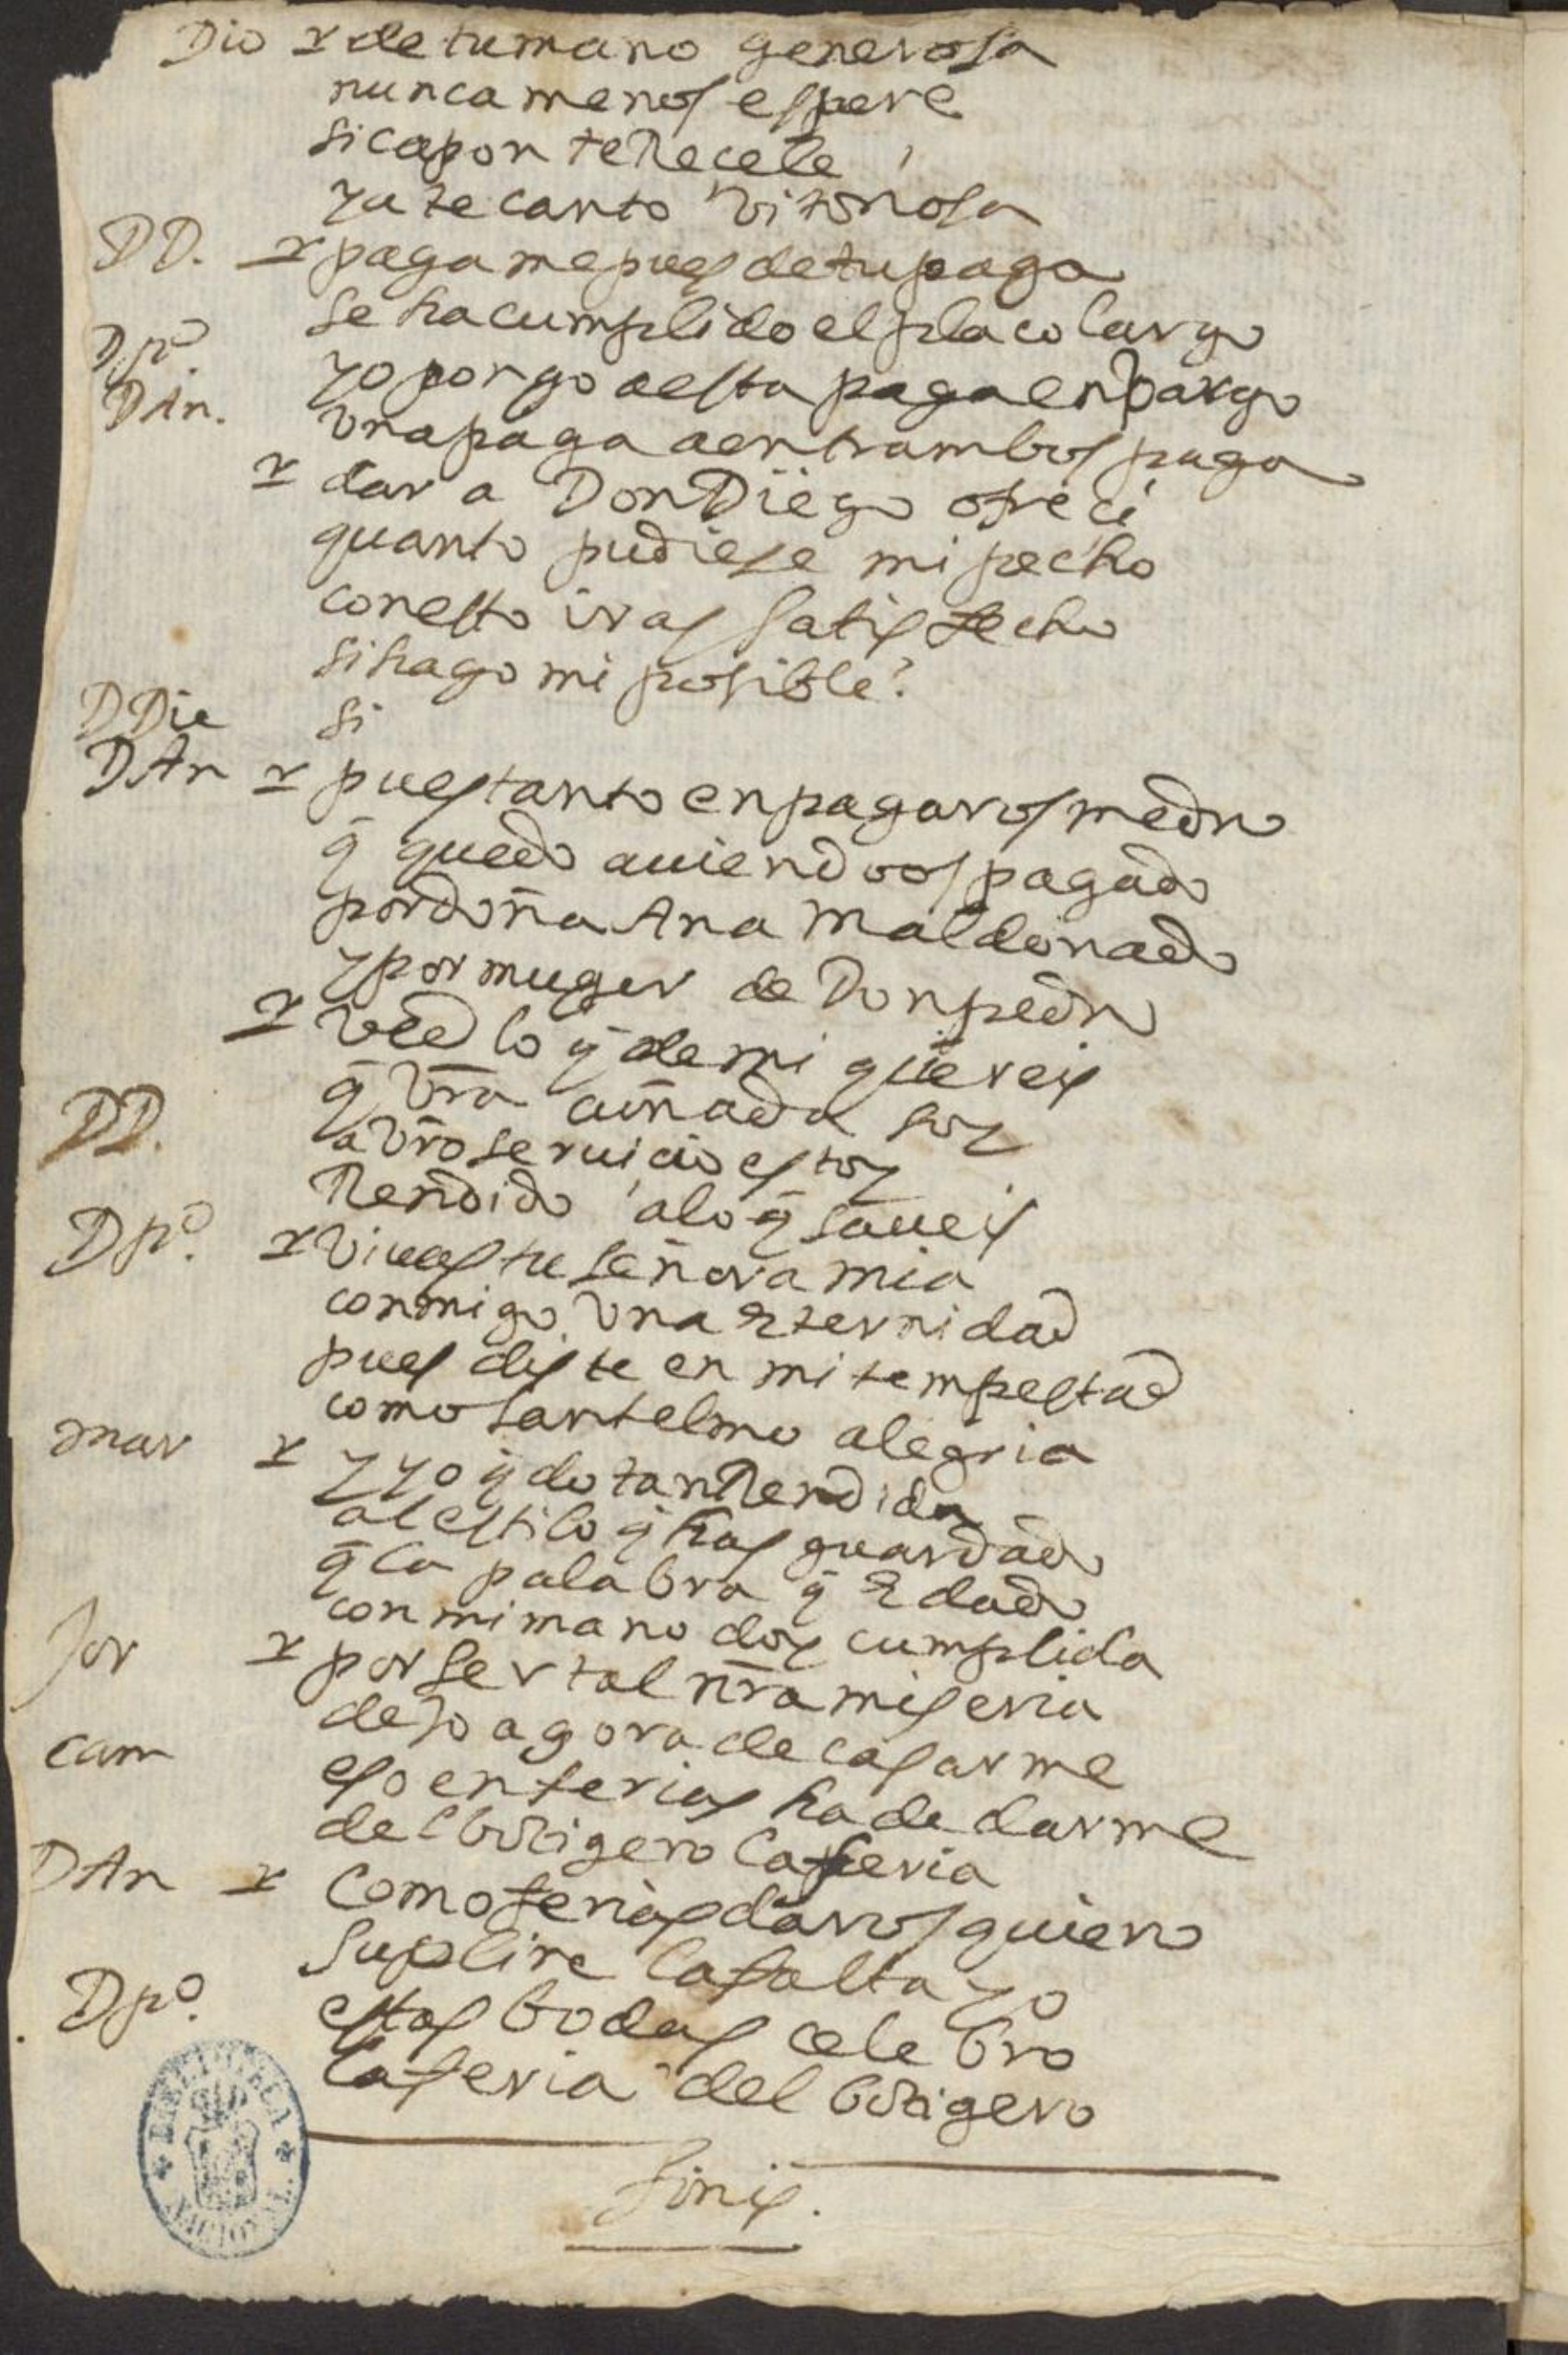 Dio de tu mano generosa
nunca menos espere
si capon te Recele
ya te canto vitoriosa
DD. pagame pues de tu paga
se ha cumplido el plaço largo
Dpº. yo pongo a esta paga enbargo
DAn. vna paga a entrambos paga
dar a Don Diego ofreci
quanto pudiese mi pecho
con esto iras satisfecho
si hago mi posible?
DDie si
DAn pues tanto en pagaros medro
q̄ quedo auiendoos pagado
por doña Ana Maldonado
y por muger de Don pedro
ved lo q̄ de mi quereis
q̄ vr̄a cuñada soy
DD. a vr̄o seruicio estoy
Rendido a lo q̄ saueis
Dpº. viuas tu señora mia
conmigo vna eternidad
pues diste en mi tempestad
como santelmo alegria
mar y yo q̄do tan Rendida
al estilo q̄ has guardado
q̄ la palabra q̄ e dado
con mi mano doy cumplida
Jor por ser tal nr̄a miseria
dejo agora de casarme
cam eso en ferias ha de darme
del buigero la feria
DAn como ferias daros quiero
suplire la falta yo
Dpº. estas bodas celebro
la feria del buigero
finis.
BIBLIOTECA NACIONAL